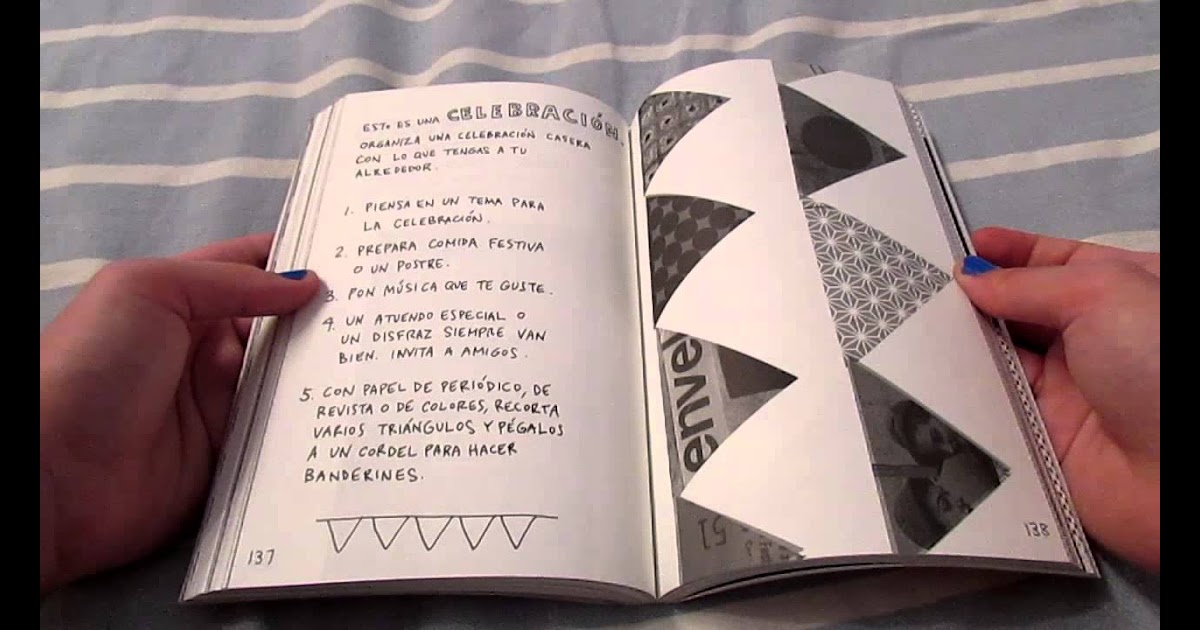 ESTO ES UNA CELEBRACIÓN.
ORGANIZA UNA CELEBRACIÓN CASERA
CON LO QUE TENGAS A TU
ALREDEDOR.
1. PIENSA EN UN TEMA PARA
LA CELEBRACIÓN.
2. PREPARA COMIDA FESTIVA
O UN POSTRE.
3. PON MÚSICA QUE TE GUSTE.
4. UN ATUENDO ESPECIAL O
UN DISFRAZ SIEMPRE VAN
BIEN. INVITA A AMIGOS.
5. CON PAPEL DE PERIÓDICO, DE
REVISTA O DE COLORES, RECORTA
VARIOS TRIÁNGULOS Y PÉGALOS
A UN CORDEL PARA HACER
BANDERINES.
137
enve
51
138